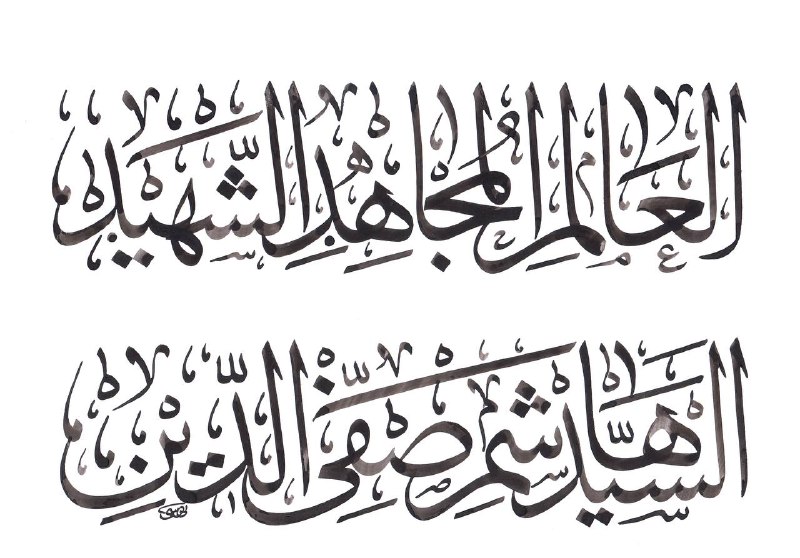 العَالِمِ المُجَاهِدِ الشَّهِيدِ
السيّد هَاشِم صَفِيِّ الدِّيْنِ